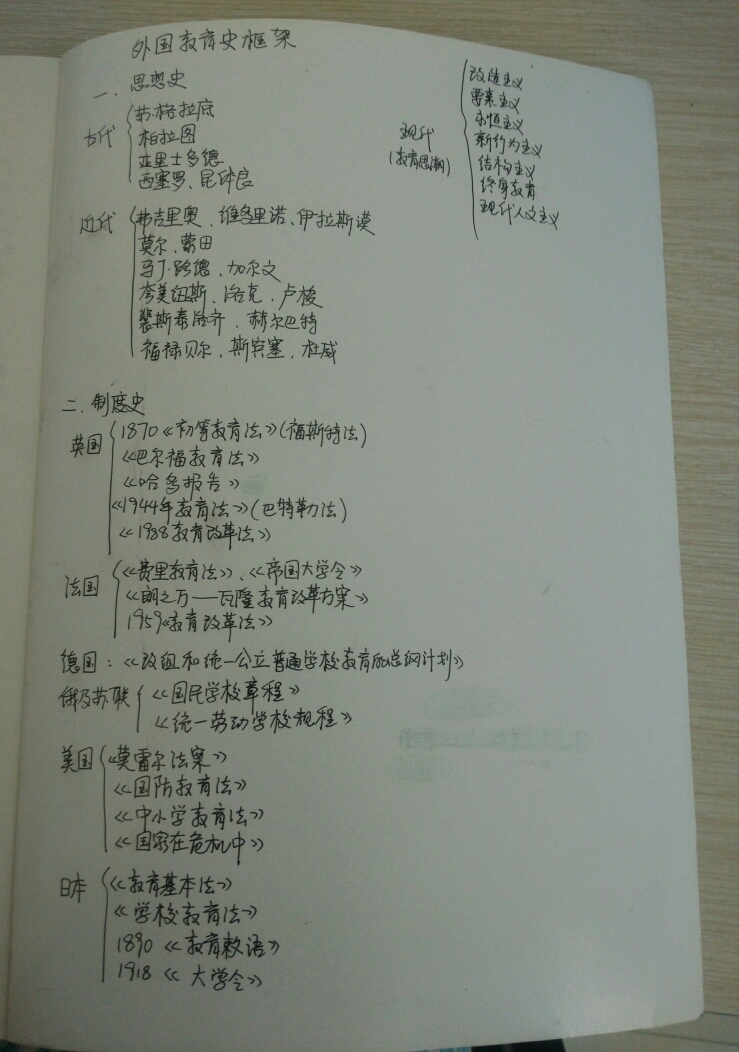 外国教育史框架
一、思想史
古代
苏格拉底
柏拉图
亚里士多德
西塞罗、昆体良
现代
(教育思潮)
改造主义
要素主义
永恒主义
新行为主义
结构主义
终身教育
现代人文主义
近代
弗吉里奥、维多里诺、伊拉斯谟
莫尔、蒙田
马丁·路德、加尔文
夸美纽斯、洛克、卢梭
裴斯泰洛齐、赫尔巴特
福禄贝尔、斯宾塞、杜威
二、制度史
英国
1870《初等教育法》(福斯特法)
《巴尔福教育法》
《哈多报告》
《1944年教育法》(巴特勒法)
《1988教育改革法》
法国
《费里教育法》、《帝国大学令》
《朗之万——瓦隆教育改革方案》
1959《教育改革法》
德国:《改组和统一公立普通学校教育的总纲计划》
俄及苏联
《国民学校章程》
《统一劳动学校规程》
美国
《莫雷尔法案》
《国防教育法》
《中小学教育法》
《国家在危机中》
日本
《教育基本法》
《学校教育法》
1890《教育敕语》
1918《大学令》